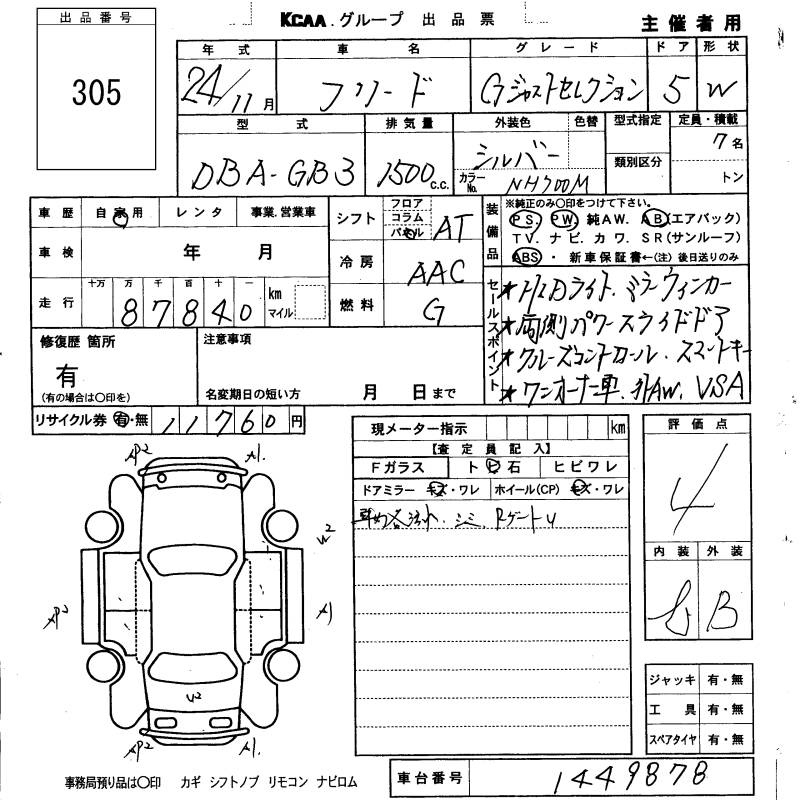 KCAA.グループ 出品票
主催者用
出品番号
305
年式 車名 グレード ドア 形状
24/11月 フリード Gジャストセレクション 5 W
型式 排気量 外装色 色替 型式指定 定員・積載
DBA-GB3 1500c.c. シルバー カラーNo. NH700M 類別区分 7名 トン
車歴 自家用 レンタ 事業.営業車
車検 年 月
走行 十万 万 千 百 十 一 km マイル
87840
シフト フロア コラム パネル AT
冷房 AAC
燃料 G
装備品 ※純正のみ〇印をつけて下さい。
PS PW 純AW. AB(エアバック)
TV. ナビ. カワ. SR(サンルーフ)
ABS ・ 新車保証書←(注) 後日送りのみ
セールスポイント
★HIDライト. ミラーウィンカー
★両側パワースライドドア
★クルーズコントロール. スマートキー
★ワンオーナー車. AW. VSA
修復歴 箇所
有
(有の場合は〇印を)
注意事項
名変期日の短い方 月 日まで
リサイクル券 有・無 11760円
現メーター指示 km
【査定員記入】
Fガラス トビ石 ヒビワレ
ドアミラー キズ・ワレ ホイール(CP) キズ・ワレ
シミ. Rゲートu
評価点
4
内装 外装
B
ジャッキ 有・無
工具 有・無
スペアタイヤ 有・無
AP2 A1.
W2
AP2 A1
W2
AP2 A1.
事務局預り品は〇印 カギ シフトノブ リモコン ナビロム
車台番号 1449878